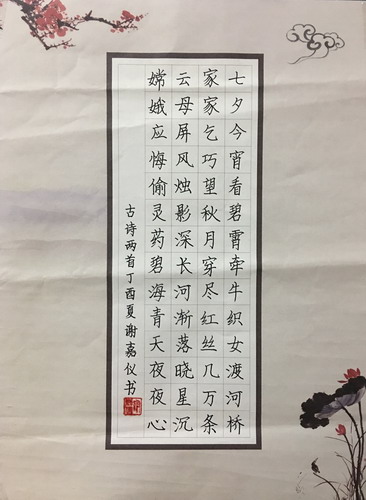 七夕今宵看碧霄牵牛织女渡河桥
家家乞巧望秋月穿尽红丝几万条
云母屏风烛影深长河渐落晓星沉
嫦娥应悔偷灵药碧海青天夜夜心
古诗两首丁酉夏谢嘉仪书